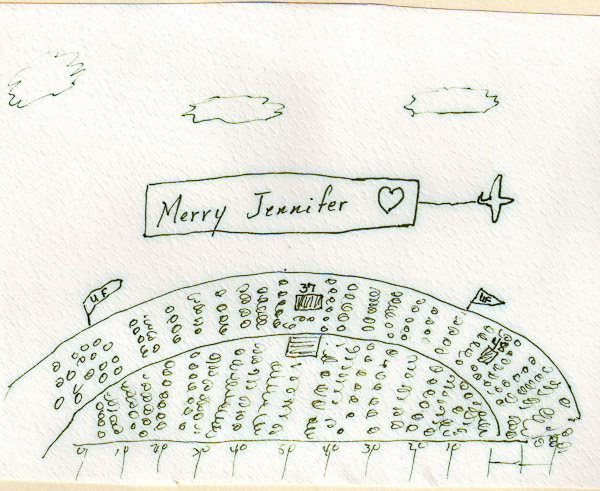 Merry Jennifer
37
UF
UF
48
G 10 20 30 40 50 40 30 20 10